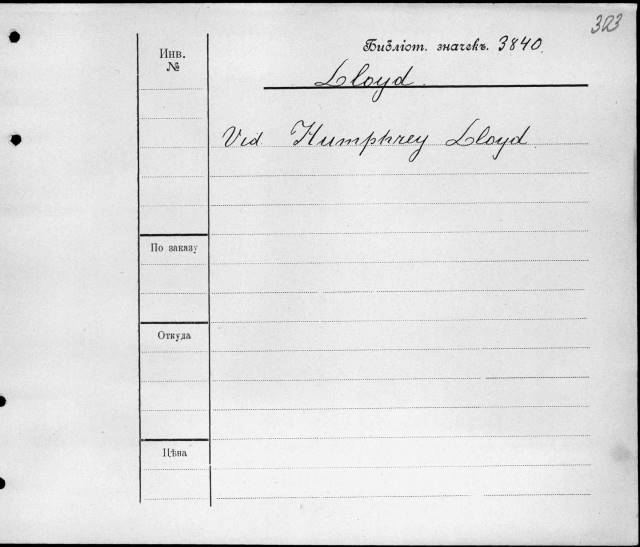 323
Библіот. значекъ. 3840.
Инв.
№
Lloyd.
Vid Humphrey Lloyd.
По заказу
Откуда
Цѣна